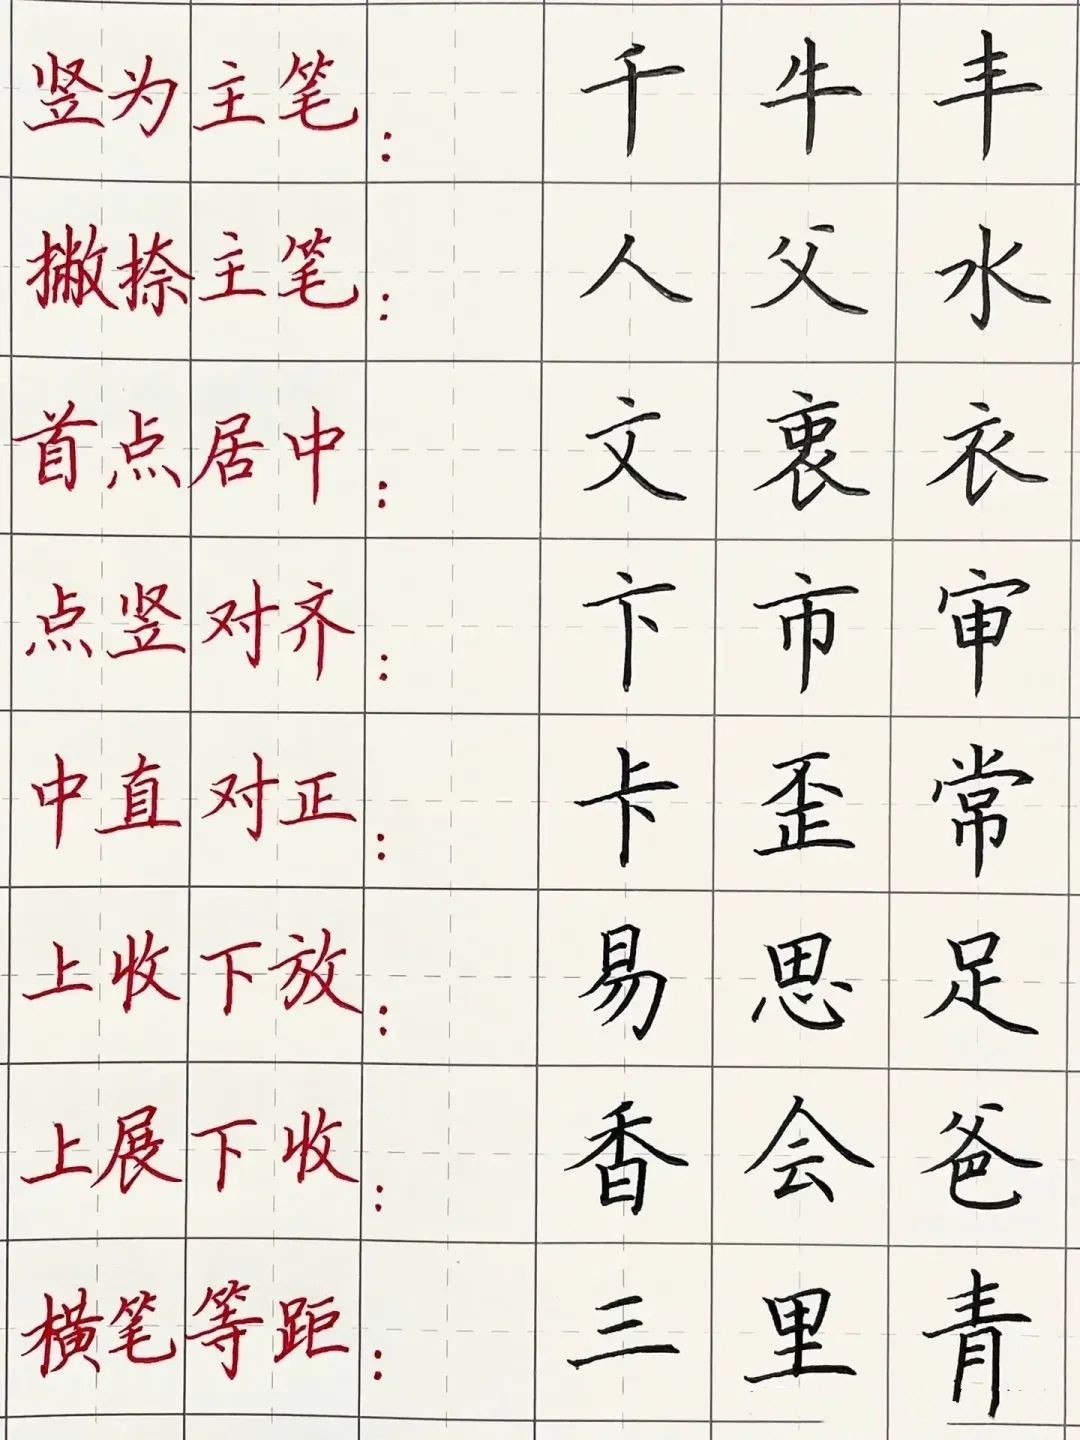 竖为主笔： 千 牛 丰
撇捺主笔： 人 父 水
首点居中： 文 衷 衣
点竖对齐： 卞 市 审
中直对正： 卡 歪 常
上收下放： 易 思 足
上展下收： 香 会 爸
横笔等距： 三 里 青